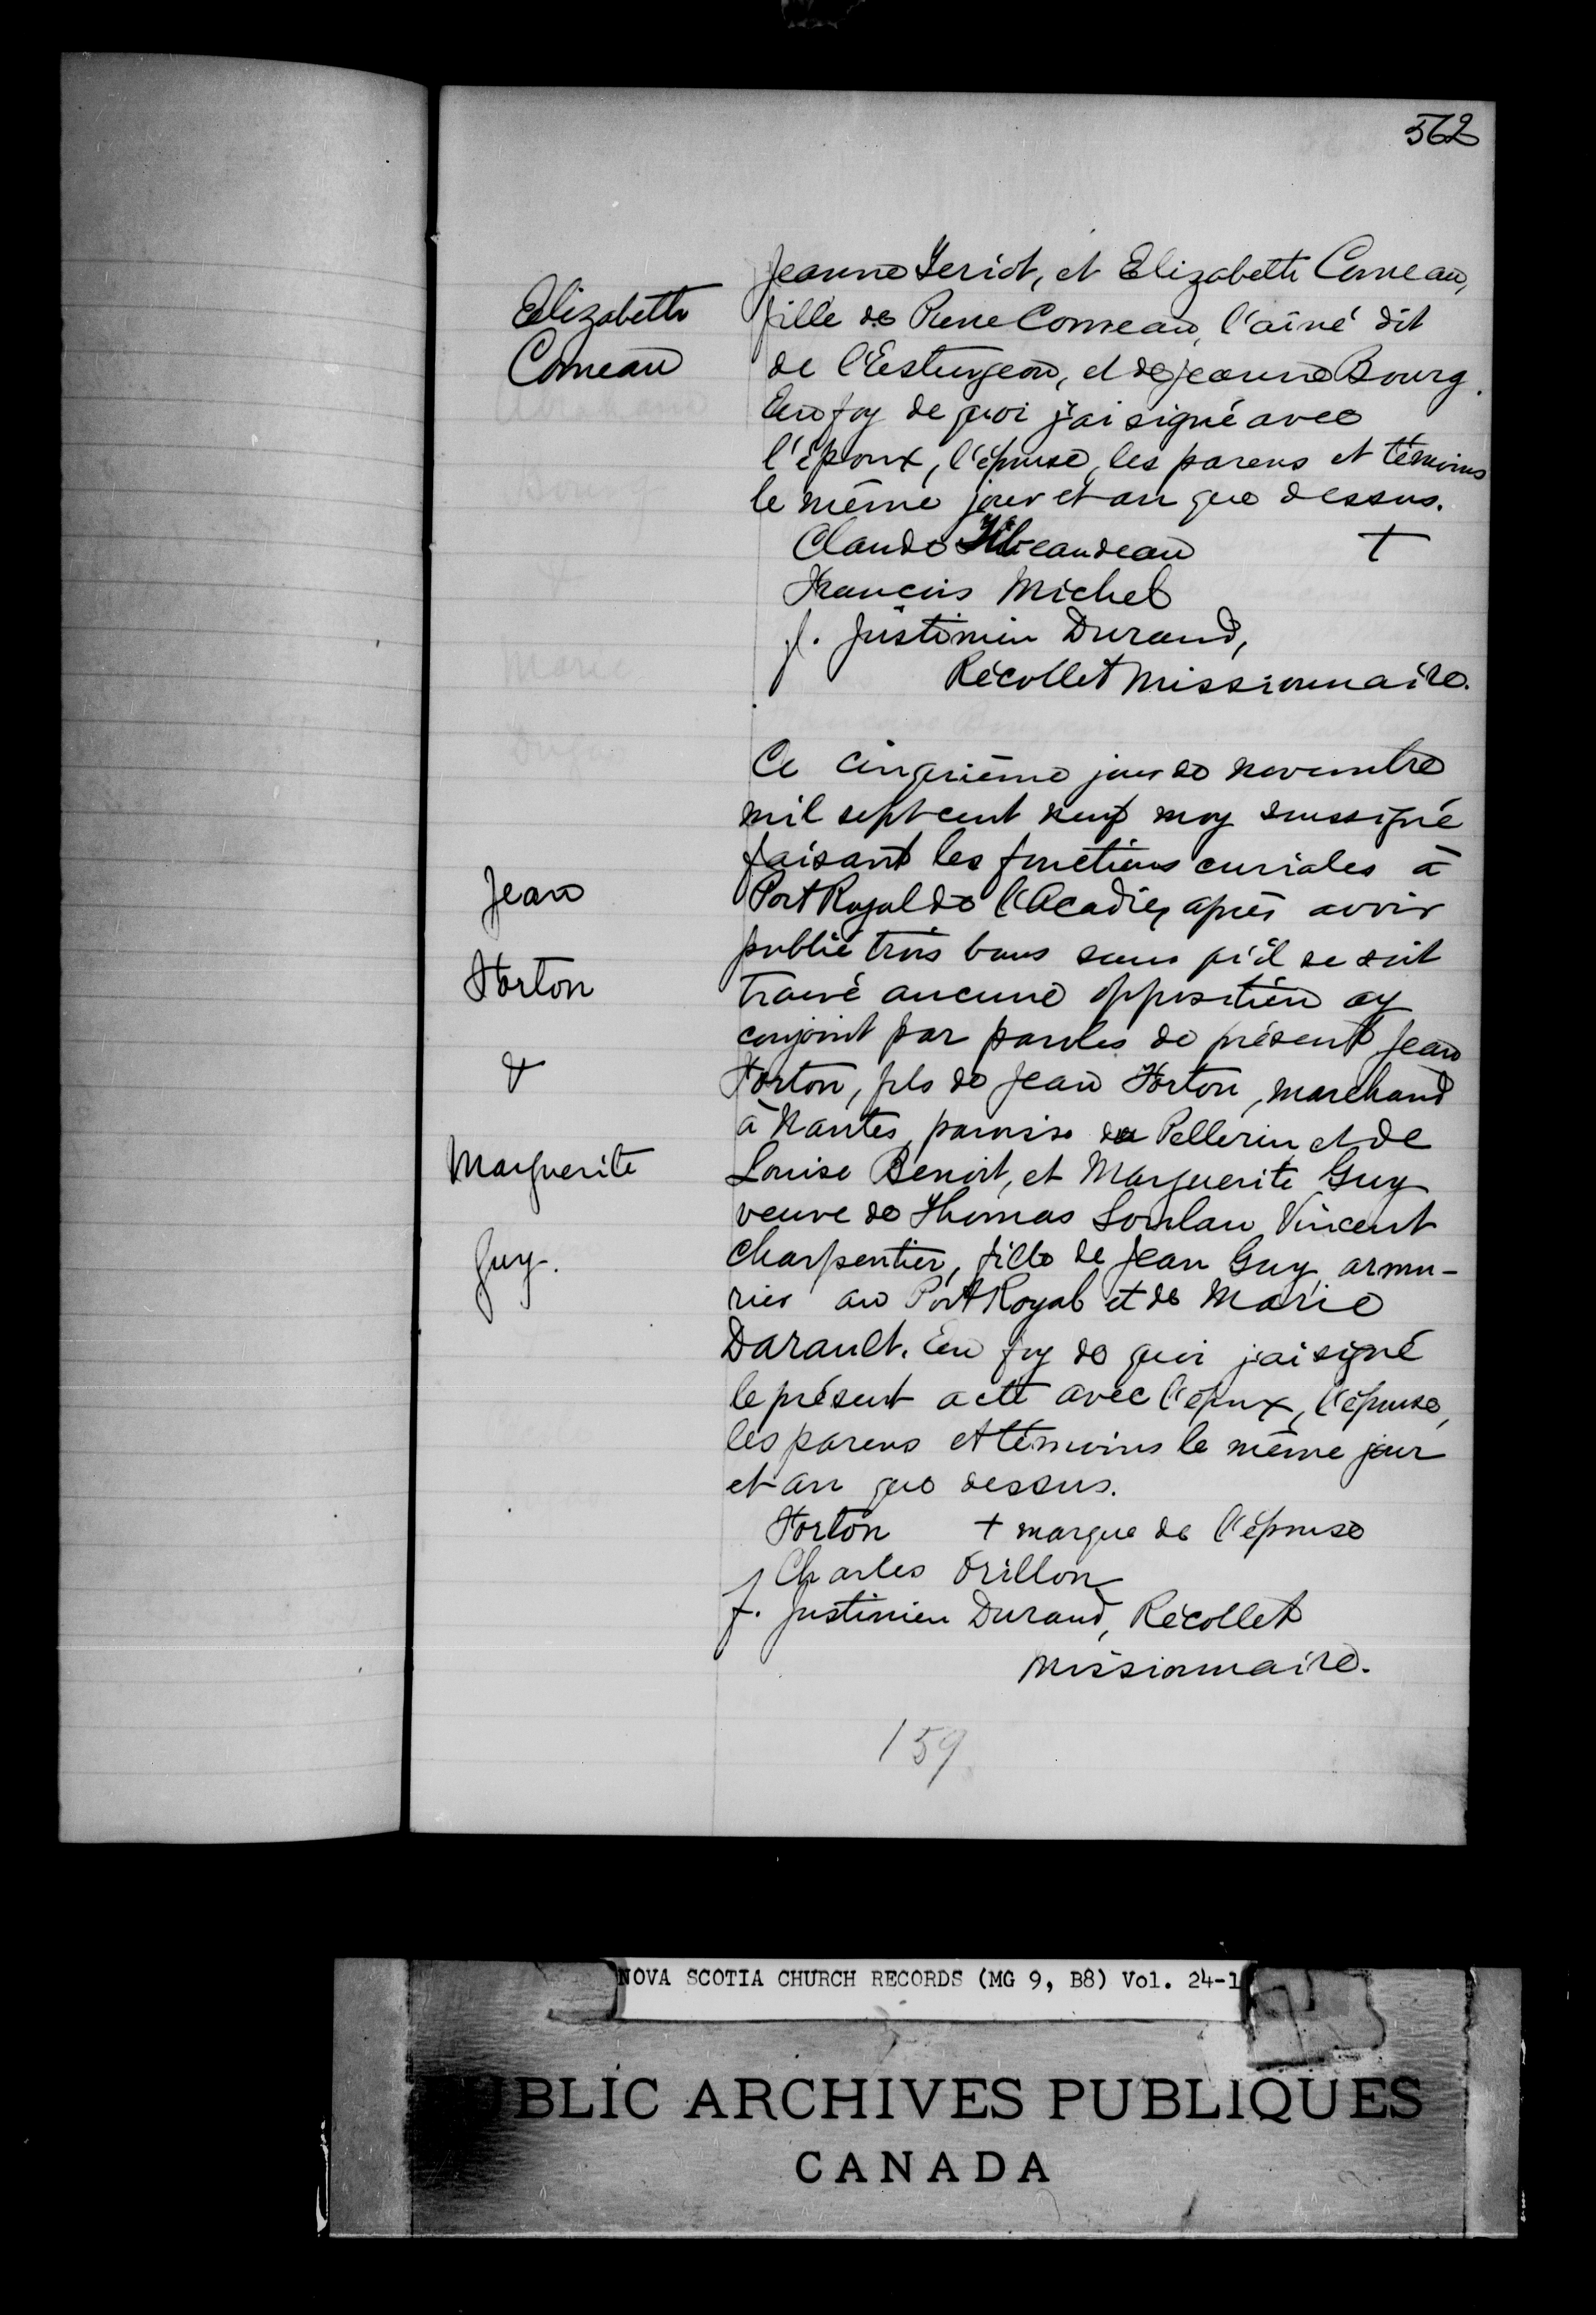 562
Jeanne Teriot, et Elizabeth Comeau,
Elizabeth
Comeau
fille de Pierre Comeau, l'aîné dit
de l'Esturgeon, et de Jeanne Bourg.
En foy de quoi j'ai signé avec
l'époux, l'épouse, les parens et témoins
le même jour et an que dessus.
Claude Thibeaudeau +
François Michel
f. Justinien Durand,
Récollet Missionnaire.
Ce cinquième jour de novembre
mil sept cent neuf moy soussigné
faisant les fonctions curiales à
Jean
Horton
&
Marguerite
Guy.
Port Royal de l'Acadie, après avoir
publié trois bans sans qu'il se soit
trouvé aucune opposition ay
conjoint par paroles de présent Jean
Horton, fils de Jean Horton, marchand
à Nantes, paroisse du Pellerin et de
Louise Benoit, et Marguerite Guy
veuve de Thomas Vincent
Charpentier, fille de Jean Guy, armu-
rier au Port Royal et de Marie
Darault. En foy de quoi j'ai signé
le présent acte avec l'époux, l'épouse,
les parens et témoins le même jour
et an que dessus.
Horton + marque de l'épouse
Charles Orillon
f. Justinien Durand, Récollet
Missionnaire.
159
NOVA SCOTIA CHURCH RECORDS (MG 9, B8) Vol. 24-1
PUBLIC ARCHIVES PUBLIQUES
CANADA